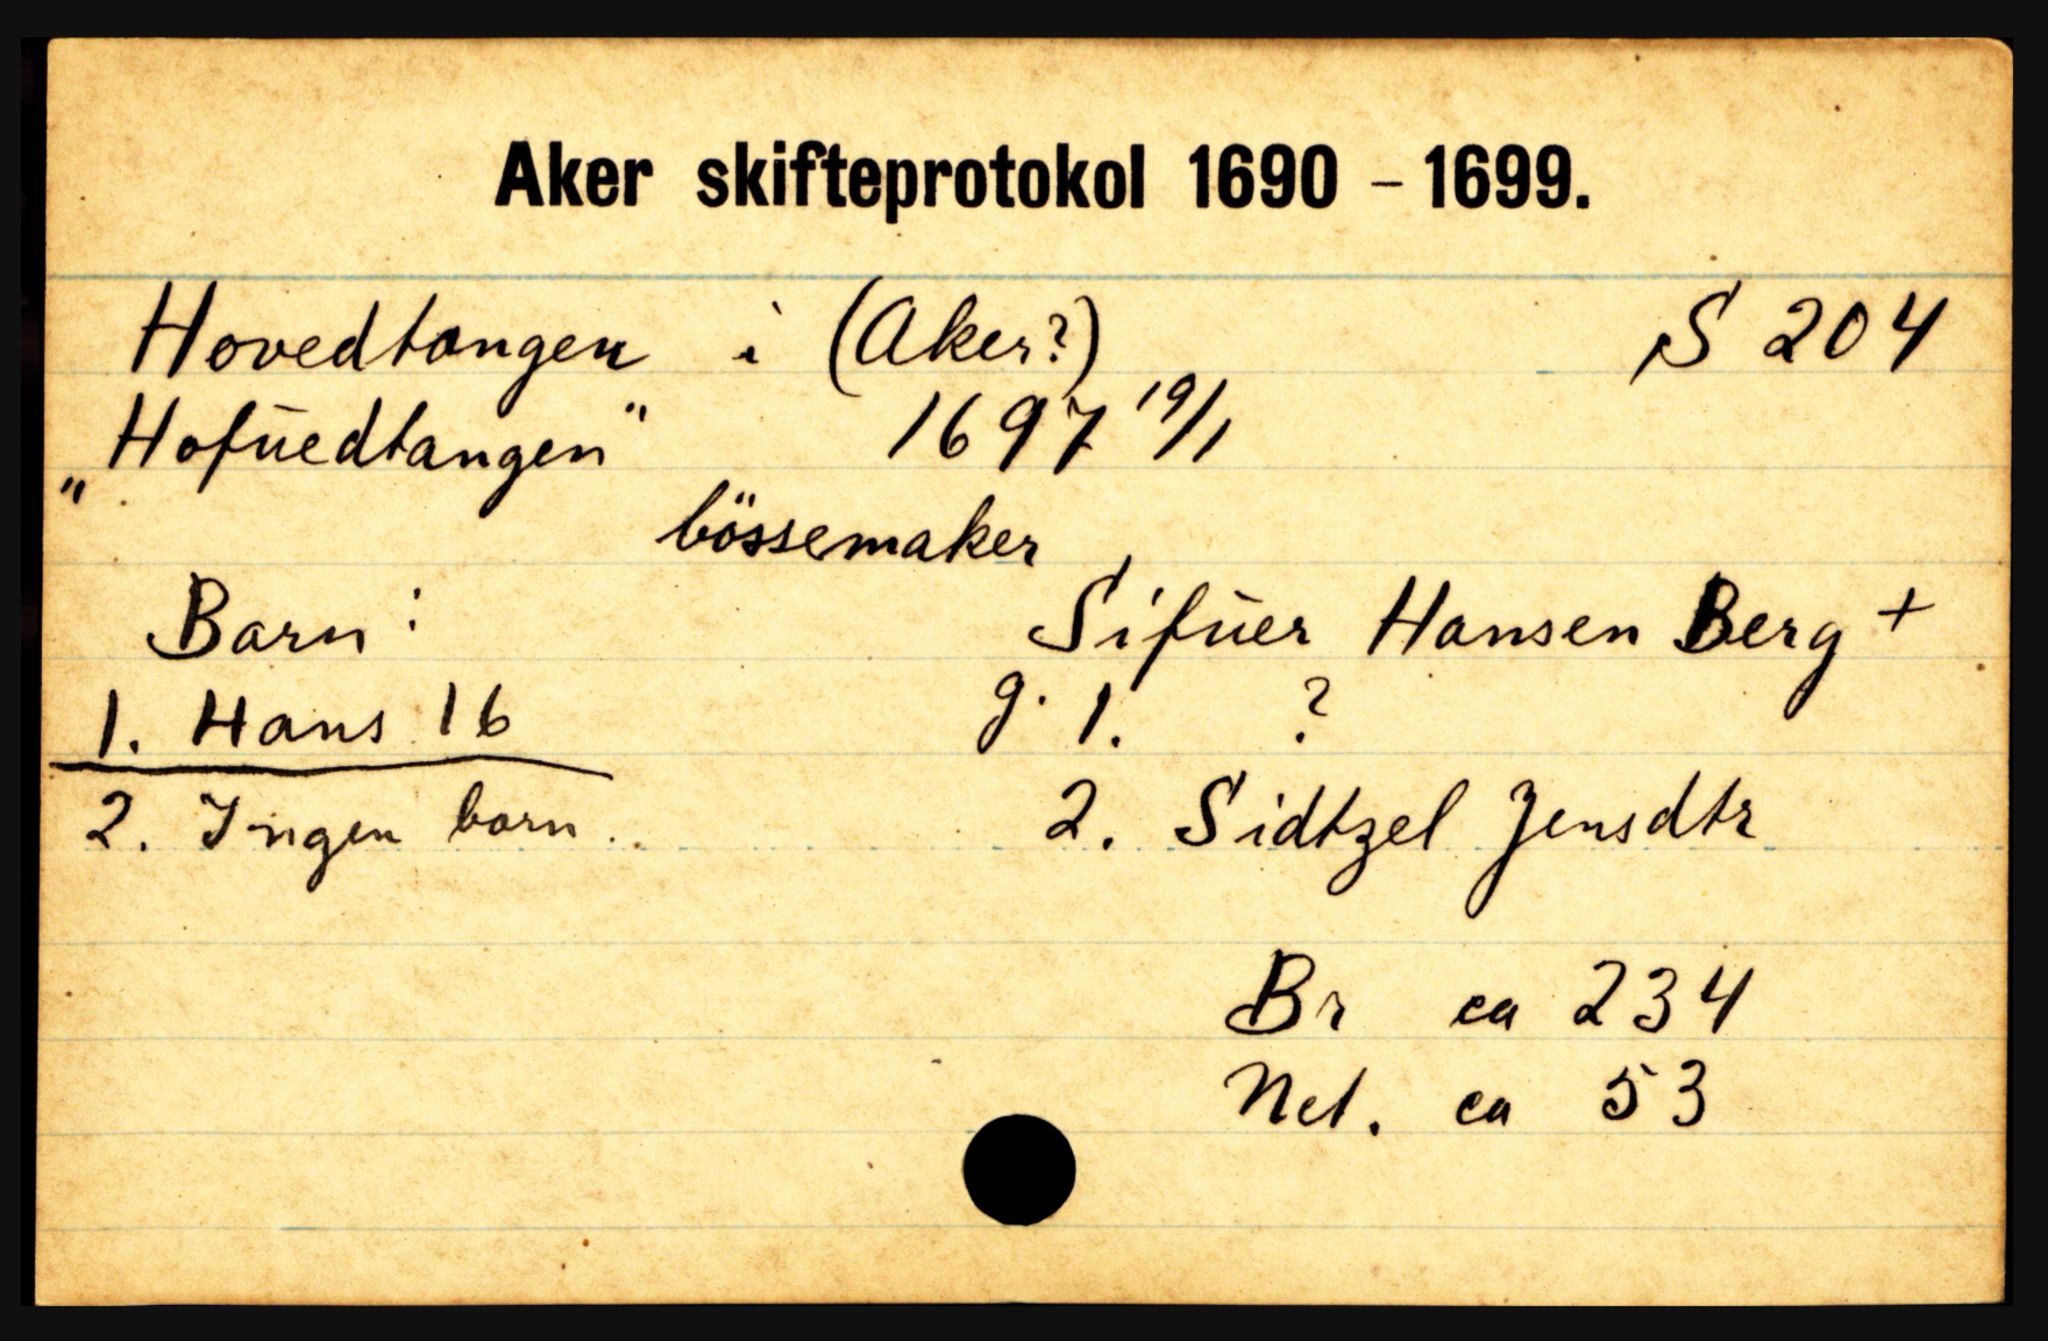 Aker skifteprotokol 1690 - 1699.
Hovedtangen i (Aker?) S 204
„Hofūedtangen" 1697 19/1
bössemaker
Barn: Sifūer Hansen Berg +
1. Hans 16 g. 1. ?
2. Ingen barn. 2. Sidtzel Jensdtr
Br ca 234
Net. ca 53